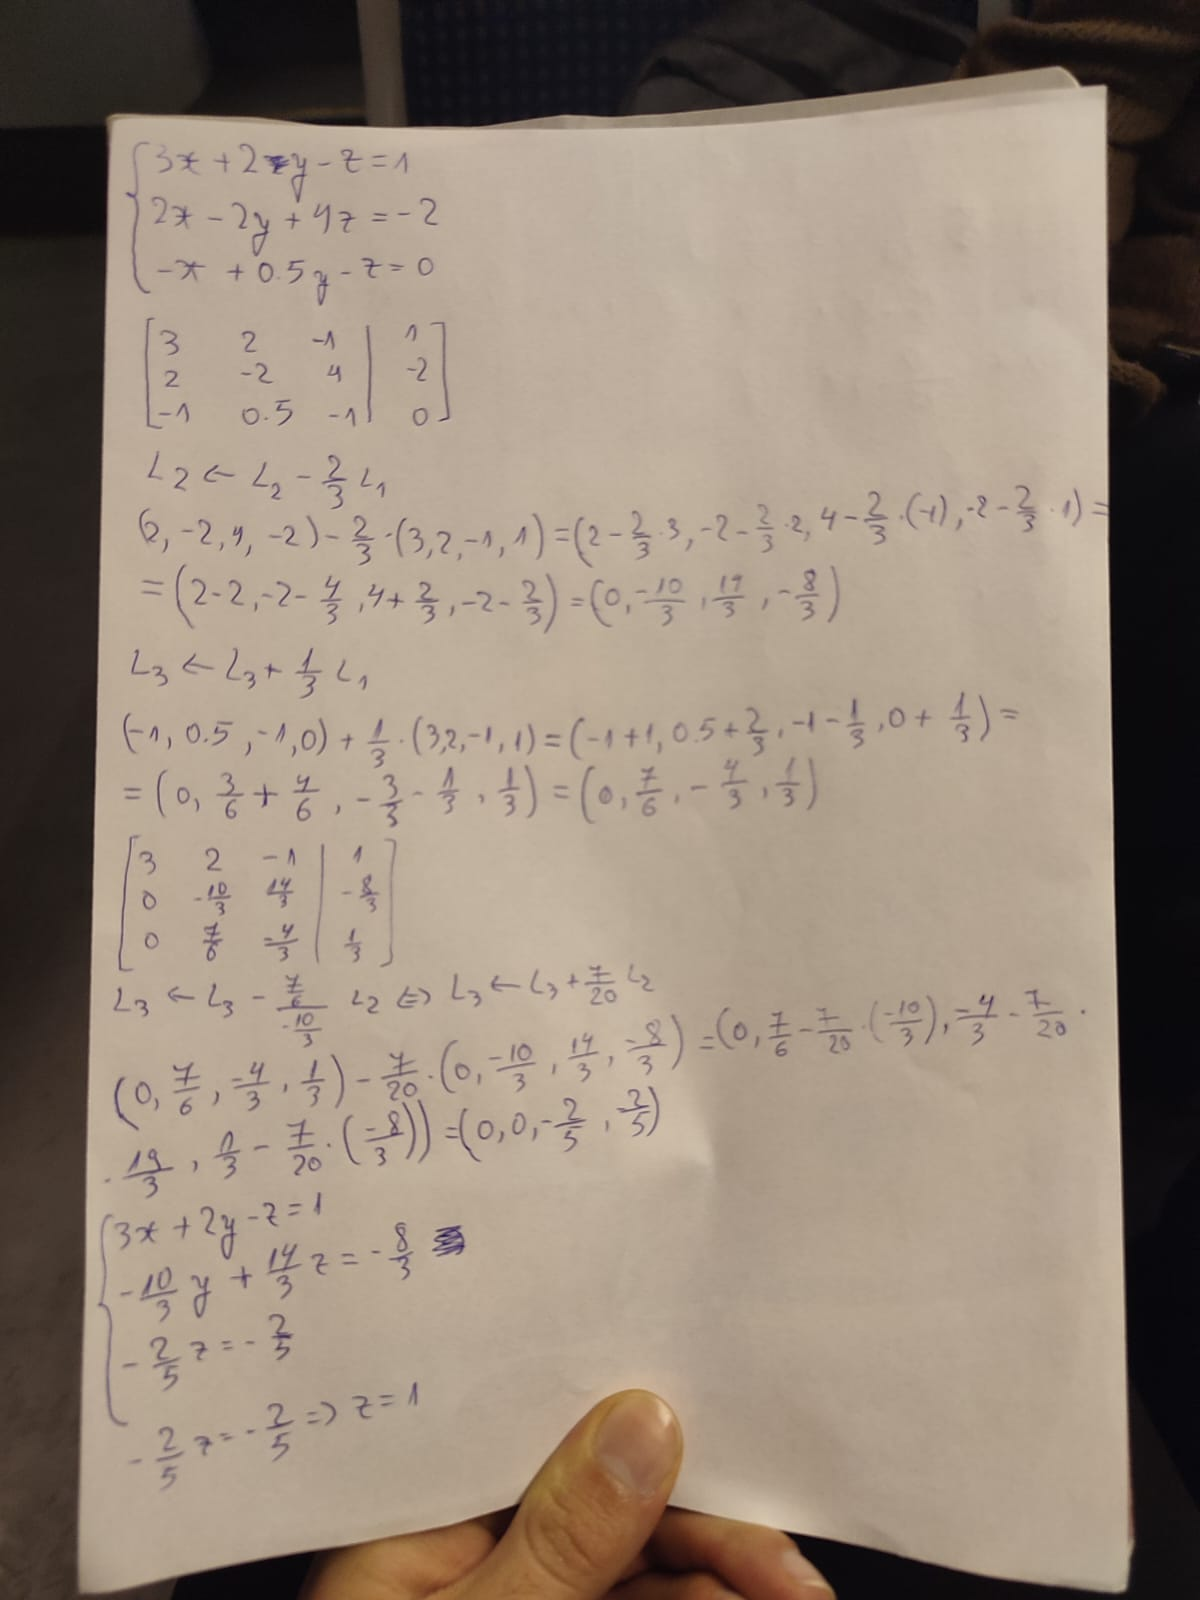 3x + 2y - z = 1
2x - 2y + 4z = -2
-x + 0.5y - z = 0
[3 2 -1 | 1]
[2 -2 4 | -2]
[-1 0.5 -1 | 0]
L₂ ← L₂ - 2/3 L₁
(2, -2, 4, -2) - 2/3 · (3, 2, -1, 1) = (2 - 2/3 · 3, -2 - 2/3 · 2, 4 - 2/3 · (-1), -2 - 2/3 · 1) =
= (2-2, -2 - 4/3, 4 + 2/3, -2 - 2/3) = (0, -10/3, 14/3, -8/3)
L₃ ← L₃ + 1/3 L₁
(-1, 0.5, -1, 0) + 1/3 · (3, 2, -1, 1) = (-1+1, 0.5 + 2/3, -1 - 1/3, 0 + 1/3) =
= (0, 3/6 + 4/6, -3/3 - 1/3, 1/3) = (0, 7/6, -4/3, 1/3)
[3 2 -1 | 1]
[0 -10/3 14/3 | -8/3]
[0 7/6 -4/3 | 1/3]
L₃ ← L₃ - (7/6)/(-10/3) L₂ ⇔ L₃ ← L₃ + 7/20 L₂
(0, 7/6, -4/3, 1/3) - 7/20 · (0, -10/3, 14/3, -8/3) = (0, 7/6 - 7/20 · (-10/3), -4/3 - 7/20 ·
· 14/3, 1/3 - 7/20 · (-8/3)) = (0, 0, -2/5, -2/5)
3x + 2y - z = 1
-10/3 y + 14/3 z = -8/3
-2/5 z = -2/5
-2/5 z = -2/5 ⇒ z = 1